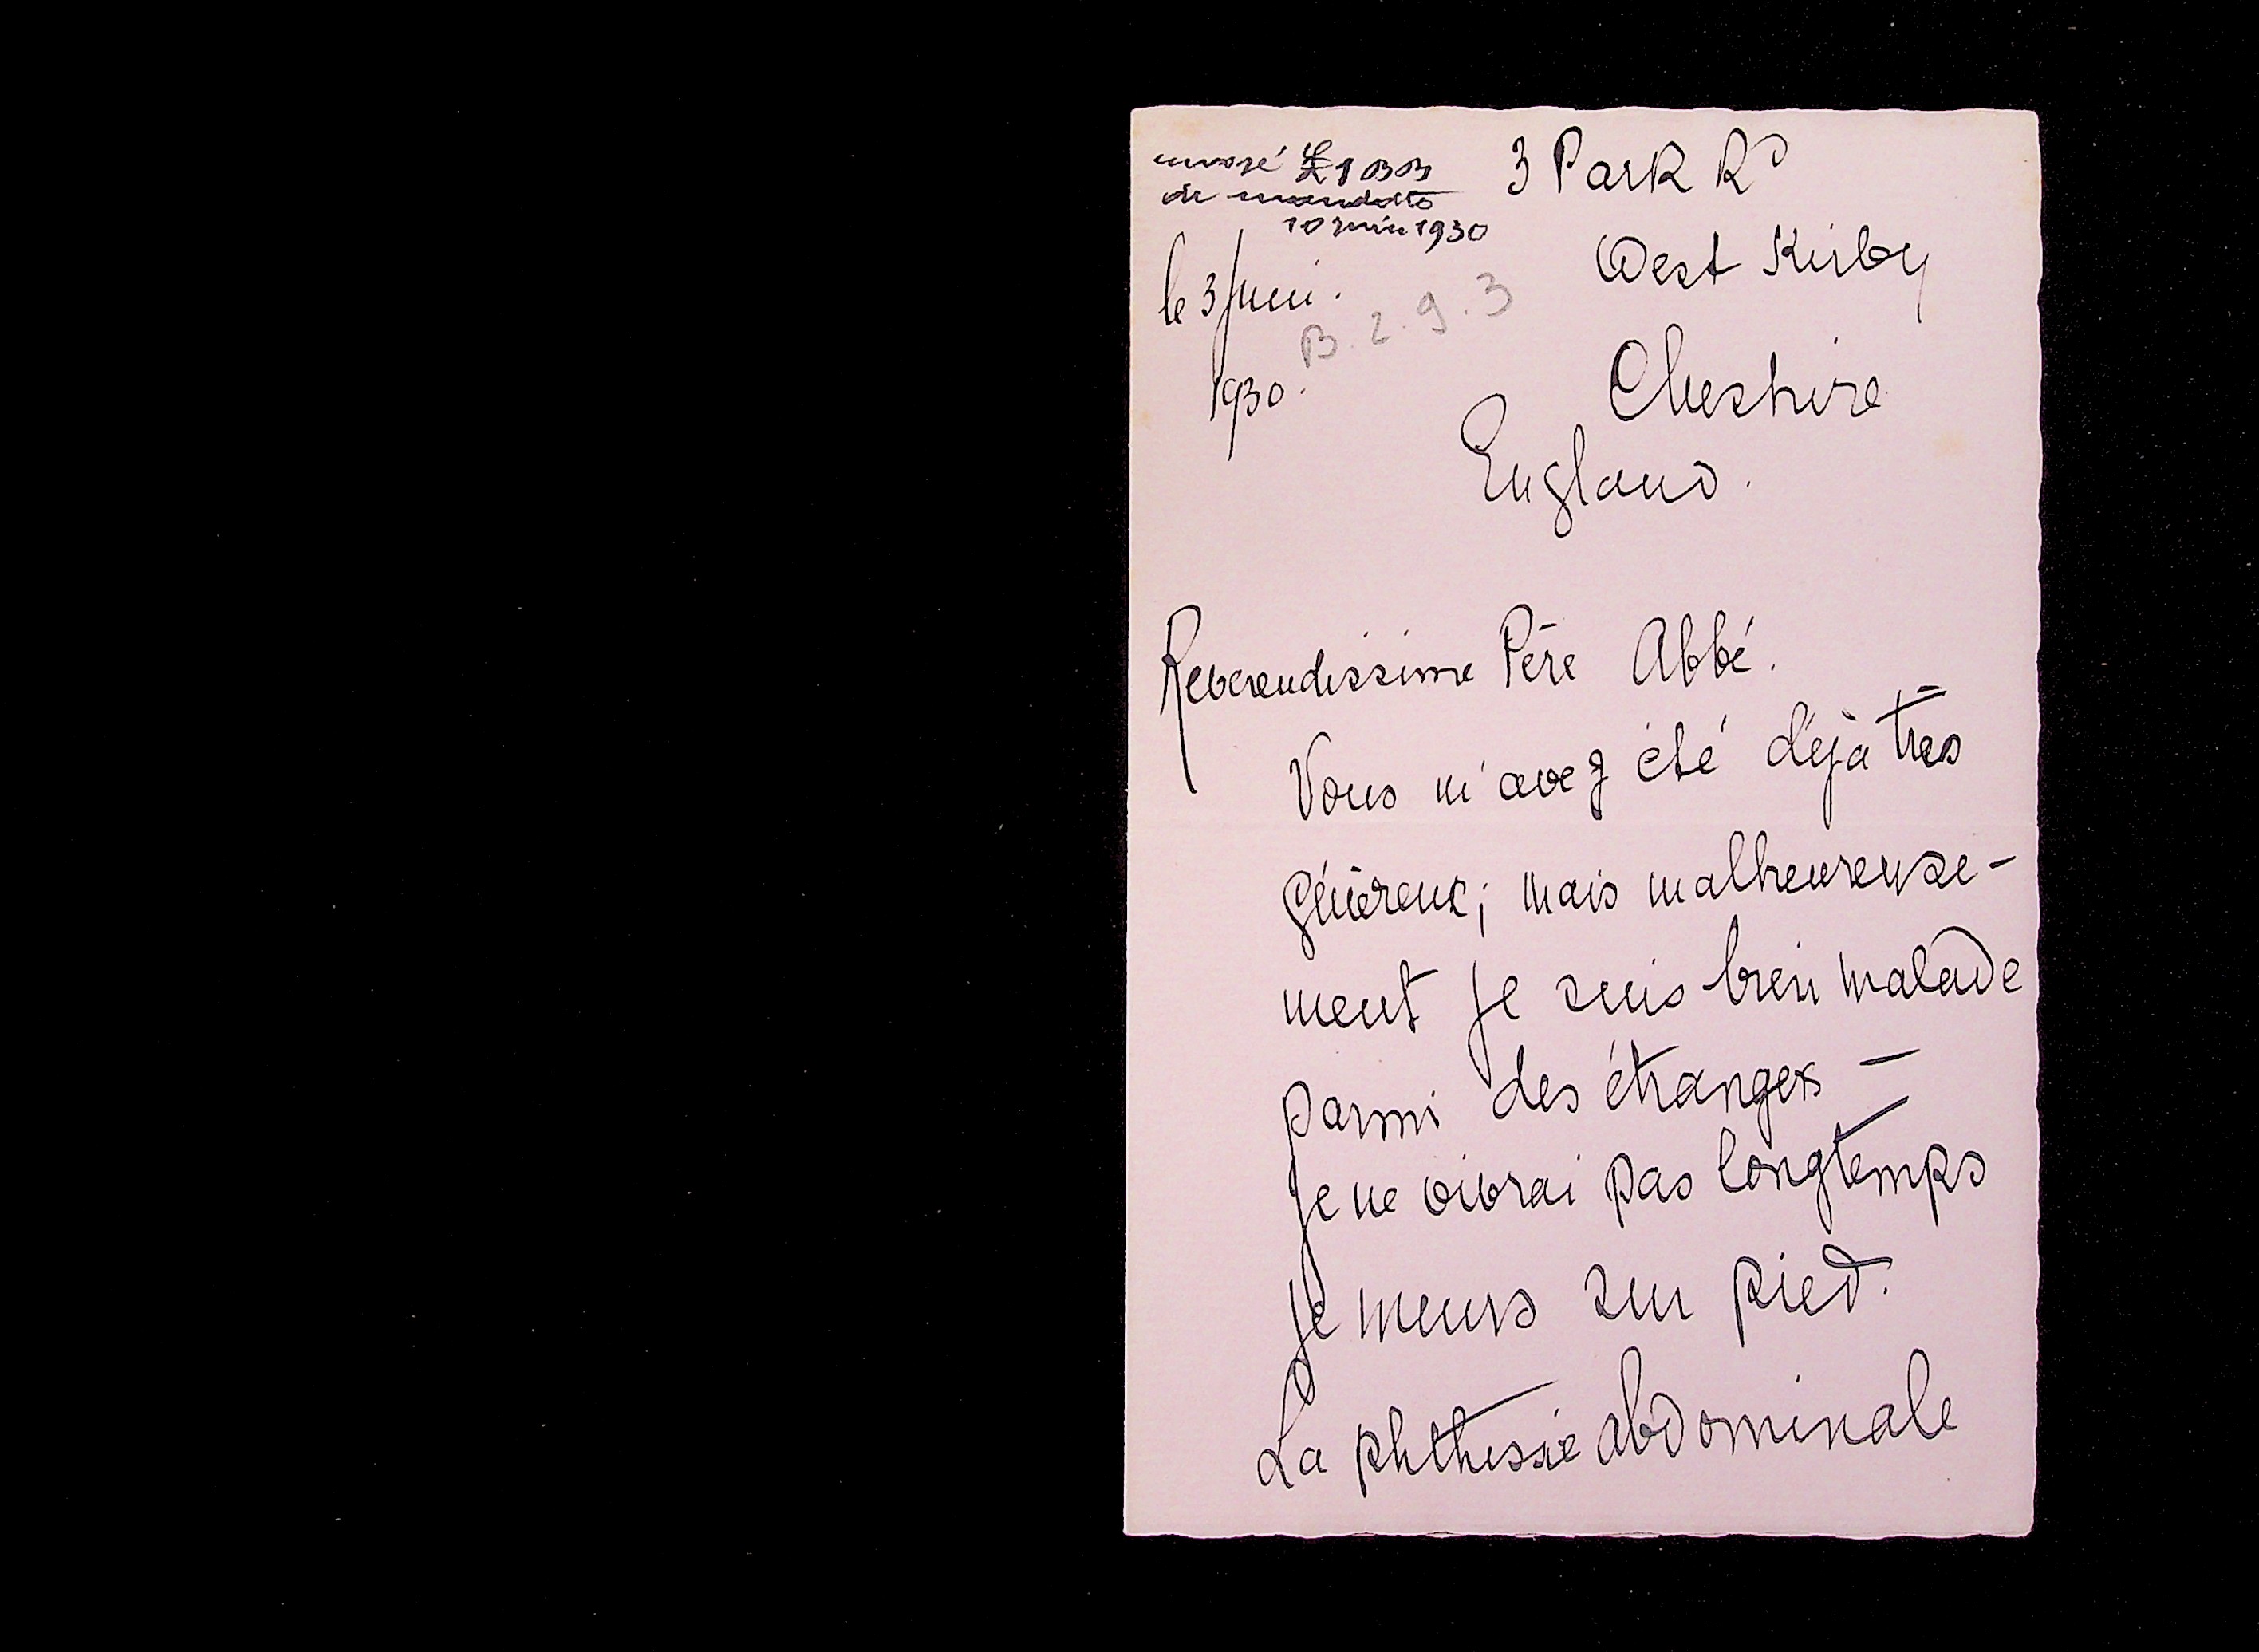 envoyé £1
10 juin 1930
3 Park Rd
West Kirby
Cheshire
England.
le 3 Juin.
1930.
B. 2. 9. 3
Reverendissime Père Abbé.
Vous m'avez été déjà très
généreux; mais malheureuse-
ment je suis bien malade
parmi des étrangers —
je ne vivrai pas longtemps
je meurs sur pied.
La phthisie abdominale